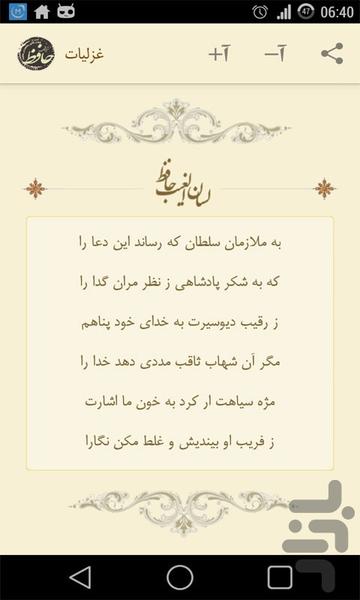 47 06:40
حافظ غزلیات آ+ آ−
لسان الغیب حافظ
به ملازمان سلطان که رساند این دعا را
که به شکر پادشاهی ز نظر مران گدا را
ز رقیب دیوسیرت به خدای خود پناهم
مگر آن شهاب ثاقب مددی دهد خدا را
مژه سیاهت ار کرد به خون ما اشارت
ز فریب او بیندیش و غلط مکن نگارا
بازار